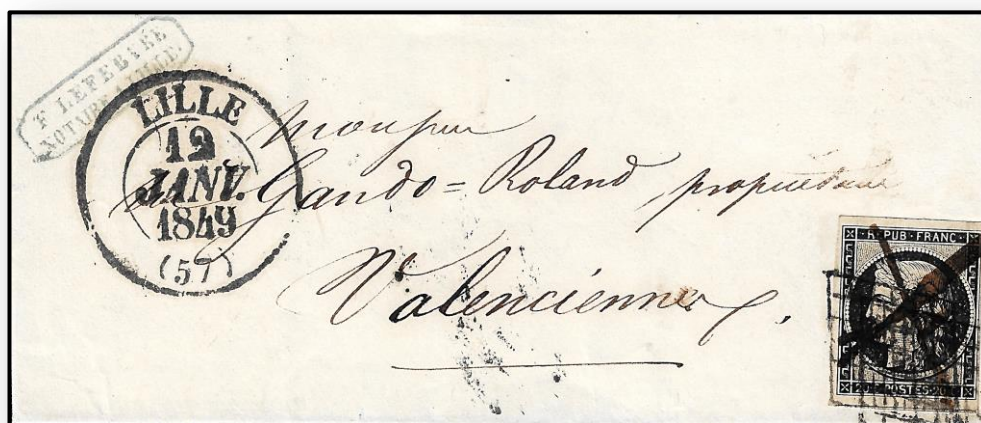 F. LEFEBVRE
NOTAIRE A LILLE
LILLE
12
JANV.
1849
(57)
Monsieur
Gando = Roland, propriétaire
Valenciennes.
REPUB · FRANC
20 POSTES 20